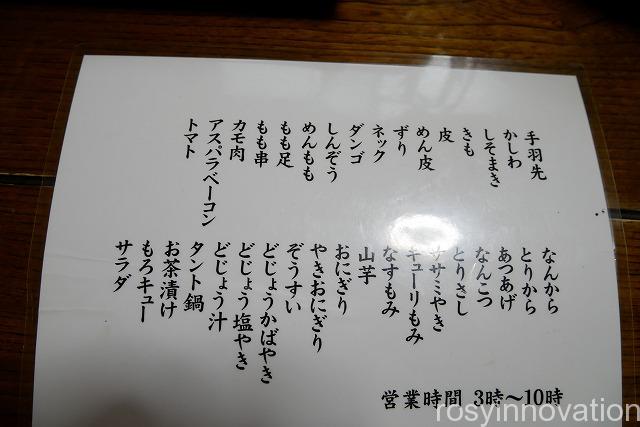 手羽先
かしわ
しそまき
きも
皮
めん皮
ずり
ネック
ダンゴ
しんぞう
めんもも
もも足
もも串
カモ肉
アスパラベーコン
トマト
なんから
とりから
あつあげ
なんこつ
とりさし
ササミやき
キューリもみ
なすもみ
山芋
おにぎり
やきおにぎり
ぞうすい
どじょうかばやき
どじょう塩やき
どじょう汁
タント鍋
お茶漬け
もろキュー
サラダ
営業時間 3時～10時
rosyinnovation